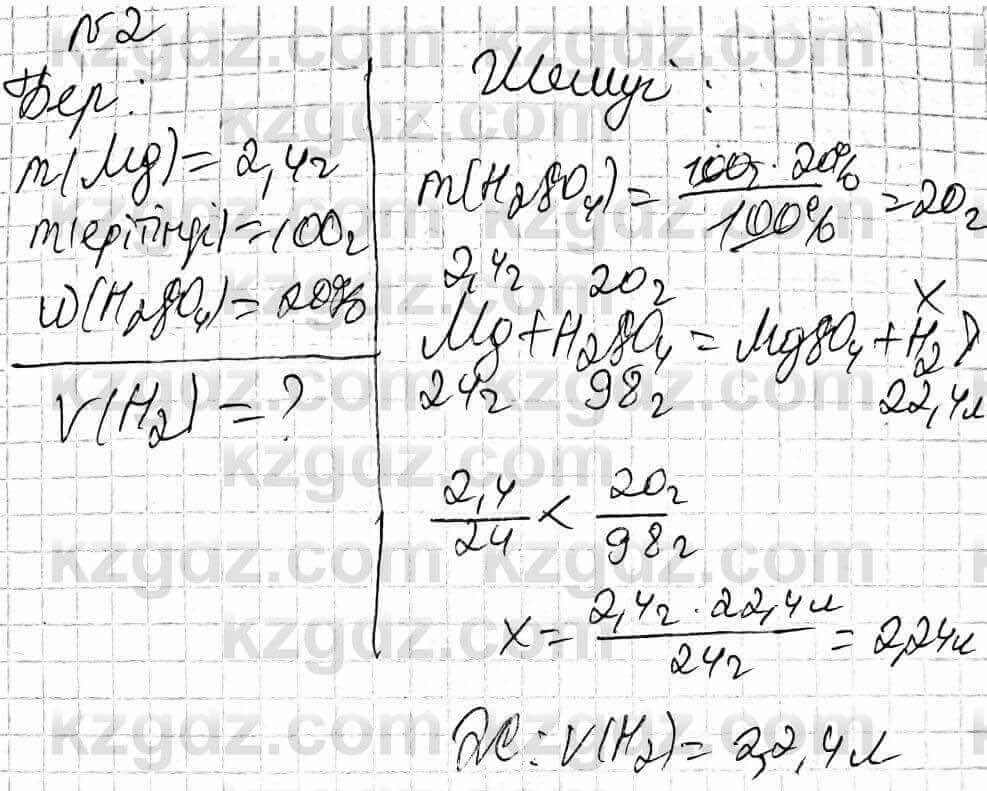 №2
Бер:
m(Mg) = 2,4г
m(ерітінді) = 100г
ω(H₂SO₄) = 20%
V(H₂) = ?
Шешуі:
m(H₂SO₄) = 100г · 20% / 100% = 20г
2,4г 20г x
Mg + H₂SO₄ = MgSO₄ + H₂↑
24г 98г 22,4л
2,4 / 24 < 20г / 98г
x = 2,4г · 22,4л / 24г = 2,24л
Ж: V(H₂) = 2,2,4л
kzgdz.com